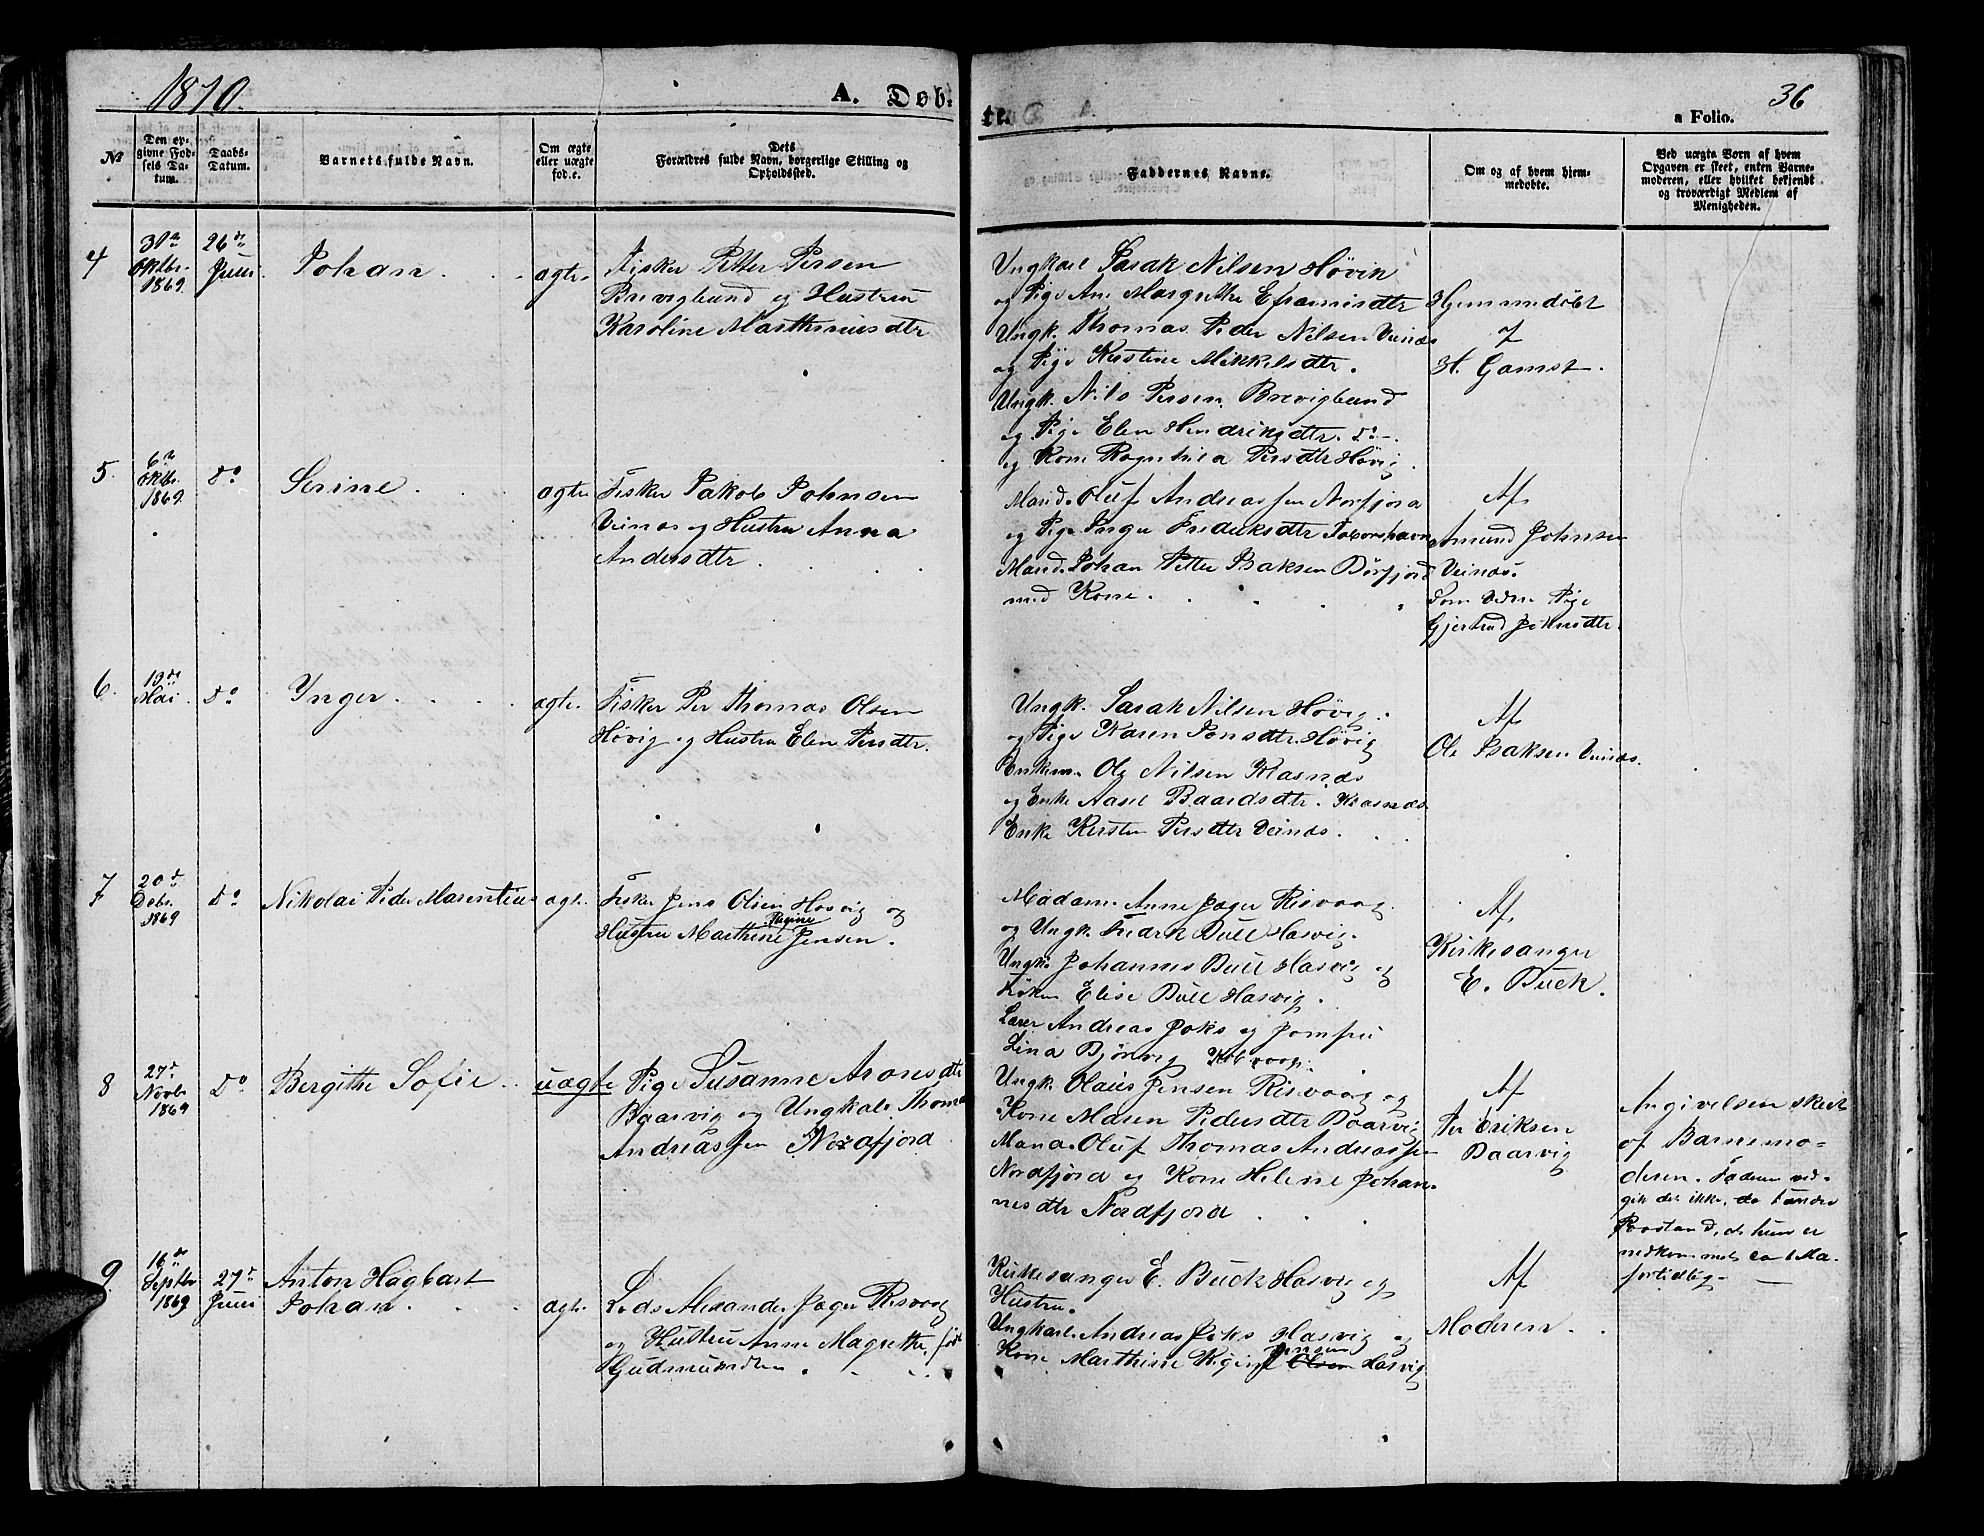 1870.
A. Døb-
te.
36
a Folio.
No
Den op-
givne Fød-
sels Da-
tum.
Daabs-
Datum.
Barnets fulde Navn.
Om ægte
eller uægte
fød.e.
Dets
Forældres fulde Navn, borgerlige Stilling og
Opholdssted.
Faddernes Navne.
Om og af hvem hjem-
medøbte.
Ved uægte Børn af hvem
Opgaven er skeet, enten Barne-
moderen, eller hvilket bekjendt
og troværdigt Medlem af
Menigheden.
4
31te
Oktbr.
1869.
26de
Juni.
Johan.
ægte.
Fisker Petter Persen
Brevigbund og Hustru
Karoline Marthinusdtr
Ungkarl Isak Nilsen Høvik
og Pige Ane Margrethe Efraimsdtr
Ungk. Thomas Peder Nilsen Veinæs
og Pige Kirstine Mikkelsdtr.
Ungk. Nils Persen Brevigbund
og Pige Elen Hendriksdtr. Do.
og Kone Ragnhild Persdtr Høvig
Hjemmedøbt
af
H. Gamst.
5.
6te
Oktbr.
1869
Do
Serine.
ægte
Fisker Jakob Johnsen
Veinæs og Hustru Anna
Andersdtr
Mand Oluf Andreassen Norfjord
og Pige Inger Fredriksdtr
Mand Johan Petter Isaksen Børfjord
med Kone.
Af
Amund Johnsen
Veinæs.
Som Vidne Pige
Gjertrud Johnsdtr.
6.
19de
Mai.
Do
Ynger.
ægte.
Fisker Per Thomas Olsen
Høvig og Hustru Elen Persdtr.
Ungk. Isak Nilsen Høvig.
og Pige Karen Jonsdtr Høvig
Enkem. Ole Nilsen Klasnæs
og Enke Aasel Baardsdtr. Klasnæs
Enke Kirsten Persdtr Veinæs.
Af
Ole Isaksen Veinæs.
7
20de
Debr.
1869
Do
Nikolai Peder Marentius
ægte.
Fisker Jens Olsen Hasvig og
Regine
Hustru Marthine Jensen.
Madam Anne Jæger Risvaag
og Ungk. Fredrk Bull Hasvig.
Ungk. Johannes Bull Hasvig og
Frøken Elise Bull Hasvig.
Lærer Andreas Joks og Jomfru
Lina Bjørvig
Af
Kirkesanger
E. Buck.
8
27de
Novbr.
1869
Do
Bergithe Sofie.
uægte
Pige Susanne Aronsdtr
Baarvig og Ungkarl Thomas
Andreassen Nordfjord
Ungk. Olaus Jensen Risvaag og
Kone Maren Pedersdtr Baarvig
Mand Oluf Thomas Andreassen
Nordfjord og Kone Helene Johan-
nesdtr Nordfjord
Af
Per Eriksen
Baarvig
Angivelsen skeet
af Barnemo-
deren. Faderen ved-
gik det ikke, da
Paastand, at hun er
nedkommet ca 1 Ma.
fortidlig.
9.
16de
Septbr
1869
27de
Juni
Anton Hagbart
Johan.
ægte.
Lods Alexander Jæger Risvaag
og Hustru Anne Magrethe, født
Gudmundsen.
Kirkesanger E. Buck Hasvig og
Hustru.
Ungkarl Andreas Joks Hasvig og
Jensen
Kone Marthine Regine Olsen Hasvig
Af
Moderen.